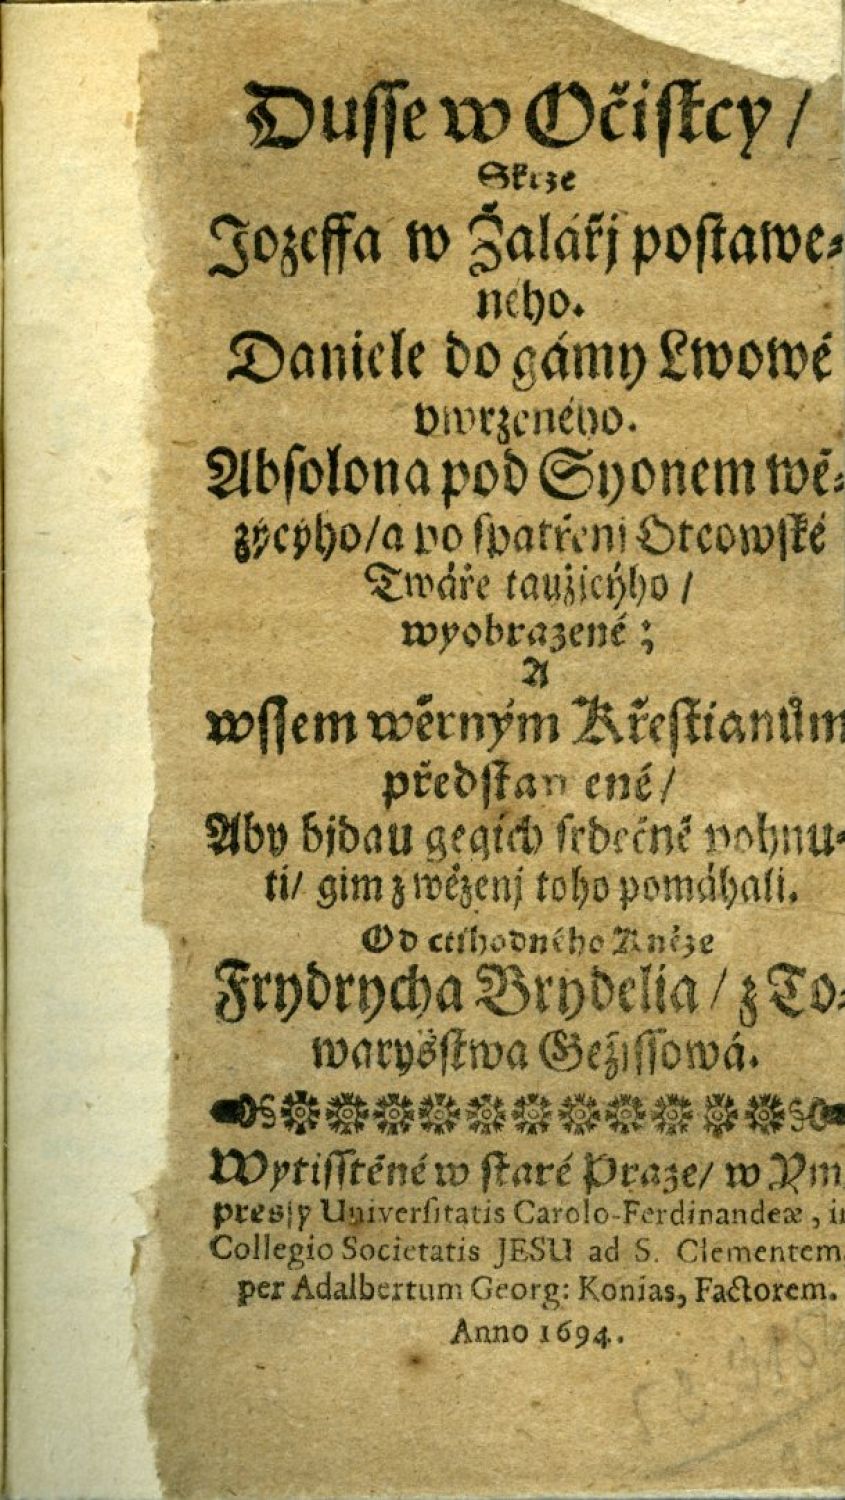 Dusse w Očistcy /
Skrze
Jozeffa w Žalářj postawe⸗
ného.
Daniele do gámy Lwowé
vwrzeného.
Absolona pod Syonem wě⸗
zýcýho/a po spatřenj Otcowské
Twáře taužjcýho /
wyobrazené ;
A
wssem wěrným Křestianům
předstawené /
Aby bjdau gegich srdečně pohnu⸗
ti/ gim z wězenj toho pomáhali.
Od ctihodného Kněze
Frydrycha Brydelia / z To⸗
warysstwa Gežissowá.
Wytisstěné w staré Praze/ w Ym
pressý Universitatis Carolo-Ferdinandeæ , in
Collegio Societatis JESU ad S. Clementem
per Adalbertum Georg: Konias, Factorem.
Anno 1694.